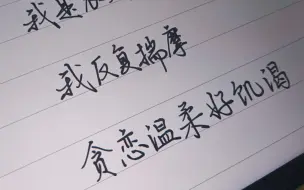 我是
我反复揣摩
贪恋温柔好饥渴